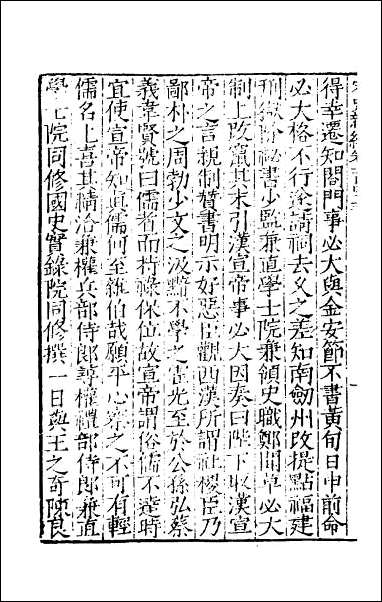 宋史新編卷一百
得幸遷知閤門事必大與金安節不書黃旬日中前命
必大格不行遂請祠去久之差知南劔州改提點福建
刑獄除祕書少監兼直學士院兼領史職鄭聞草必大
制上改竄其末引漢宣帝事必大因奏曰陛下取漢宣
帝之言親制贊書明示好惡臣觀西漢所謂社稷臣乃
鄙朴之周勃少文之汲黯不學之霍光至於公孫弘蔡
義韋賢號曰儒者而持祿保位故宣帝謂俗儒不達時
宜使宣帝知眞儒何至雜伯哉願平心察之不可有輕
儒名上喜其精洽兼權兵部侍郎尋權禮部侍郎兼直
學士院同修國史實錄院同修撰一日與王之奇陳良